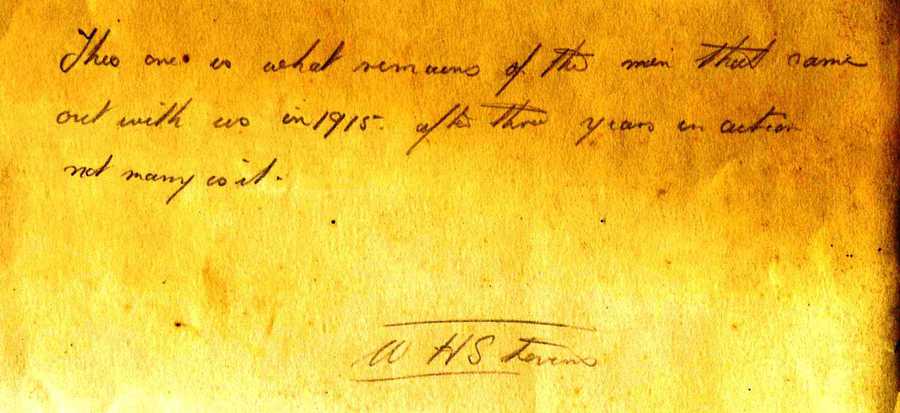 This one is what remains of the men that came
out with us in 1915. after three years in action
not many is it.
W H Stevens